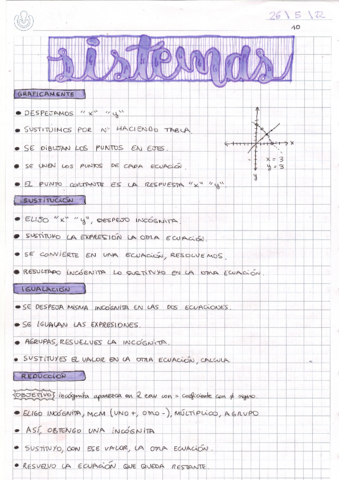 26 | 5 | 22
10
sistemas
GRÁFICAMENTE
• DESPEJAMOS "x" "y".
• SUSTITUIMOS POR Nº HACIENDO TABLA.
• SE DIBUJAN LOS PUNTOS EN EJES.
• SE UNEN LOS PUNTOS DE CADA ECUACIÓN.
• EL PUNTO CORTANTE ES LA RESPUESTA "x" "y".
x
y
x = 3
y = 3
SUSTITUCIÓN
• ELIJO "x" "y", DESPEJO INCÓGNITA.
• SUSTITUYO LA EXPRESIÓN LA OTRA ECUACIÓN.
• SE CONVIERTE EN UNA ECUACIÓN, RESOLVEMOS.
• RESULTADO INCÓGNITA LO SUSTITUYO EN LA OTRA ECUACIÓN.
IGUALACIÓN
• SE DESPEJA MISMA INCÓGNITA EN LAS DOS ECUACIONES.
• SE IGUALAN LAS EXPRESIONES.
• AGRUPAS, RESUELVES LA INCÓGNITA.
• SUSTITUYES EL VALOR EN LA OTRA ECUACIÓN, CALCULA.
REDUCCIÓN
OBJETIVO: incógnita aparezca en 2 ecuac con = coeficiente con ≠ signo.
• ELIGO INCÓGNITA, MCM (UNO +, OTRO -), MÚLTIPLICO, AGRUPO
• ASÍ, OBTENGO UNA INCÓGNITA
• SUSTITUYO, CON ESE VALOR, LA OTRA ECUACIÓN.
• RESUELVO LA ECUACIÓN QUE QUEDA RESTANTE.